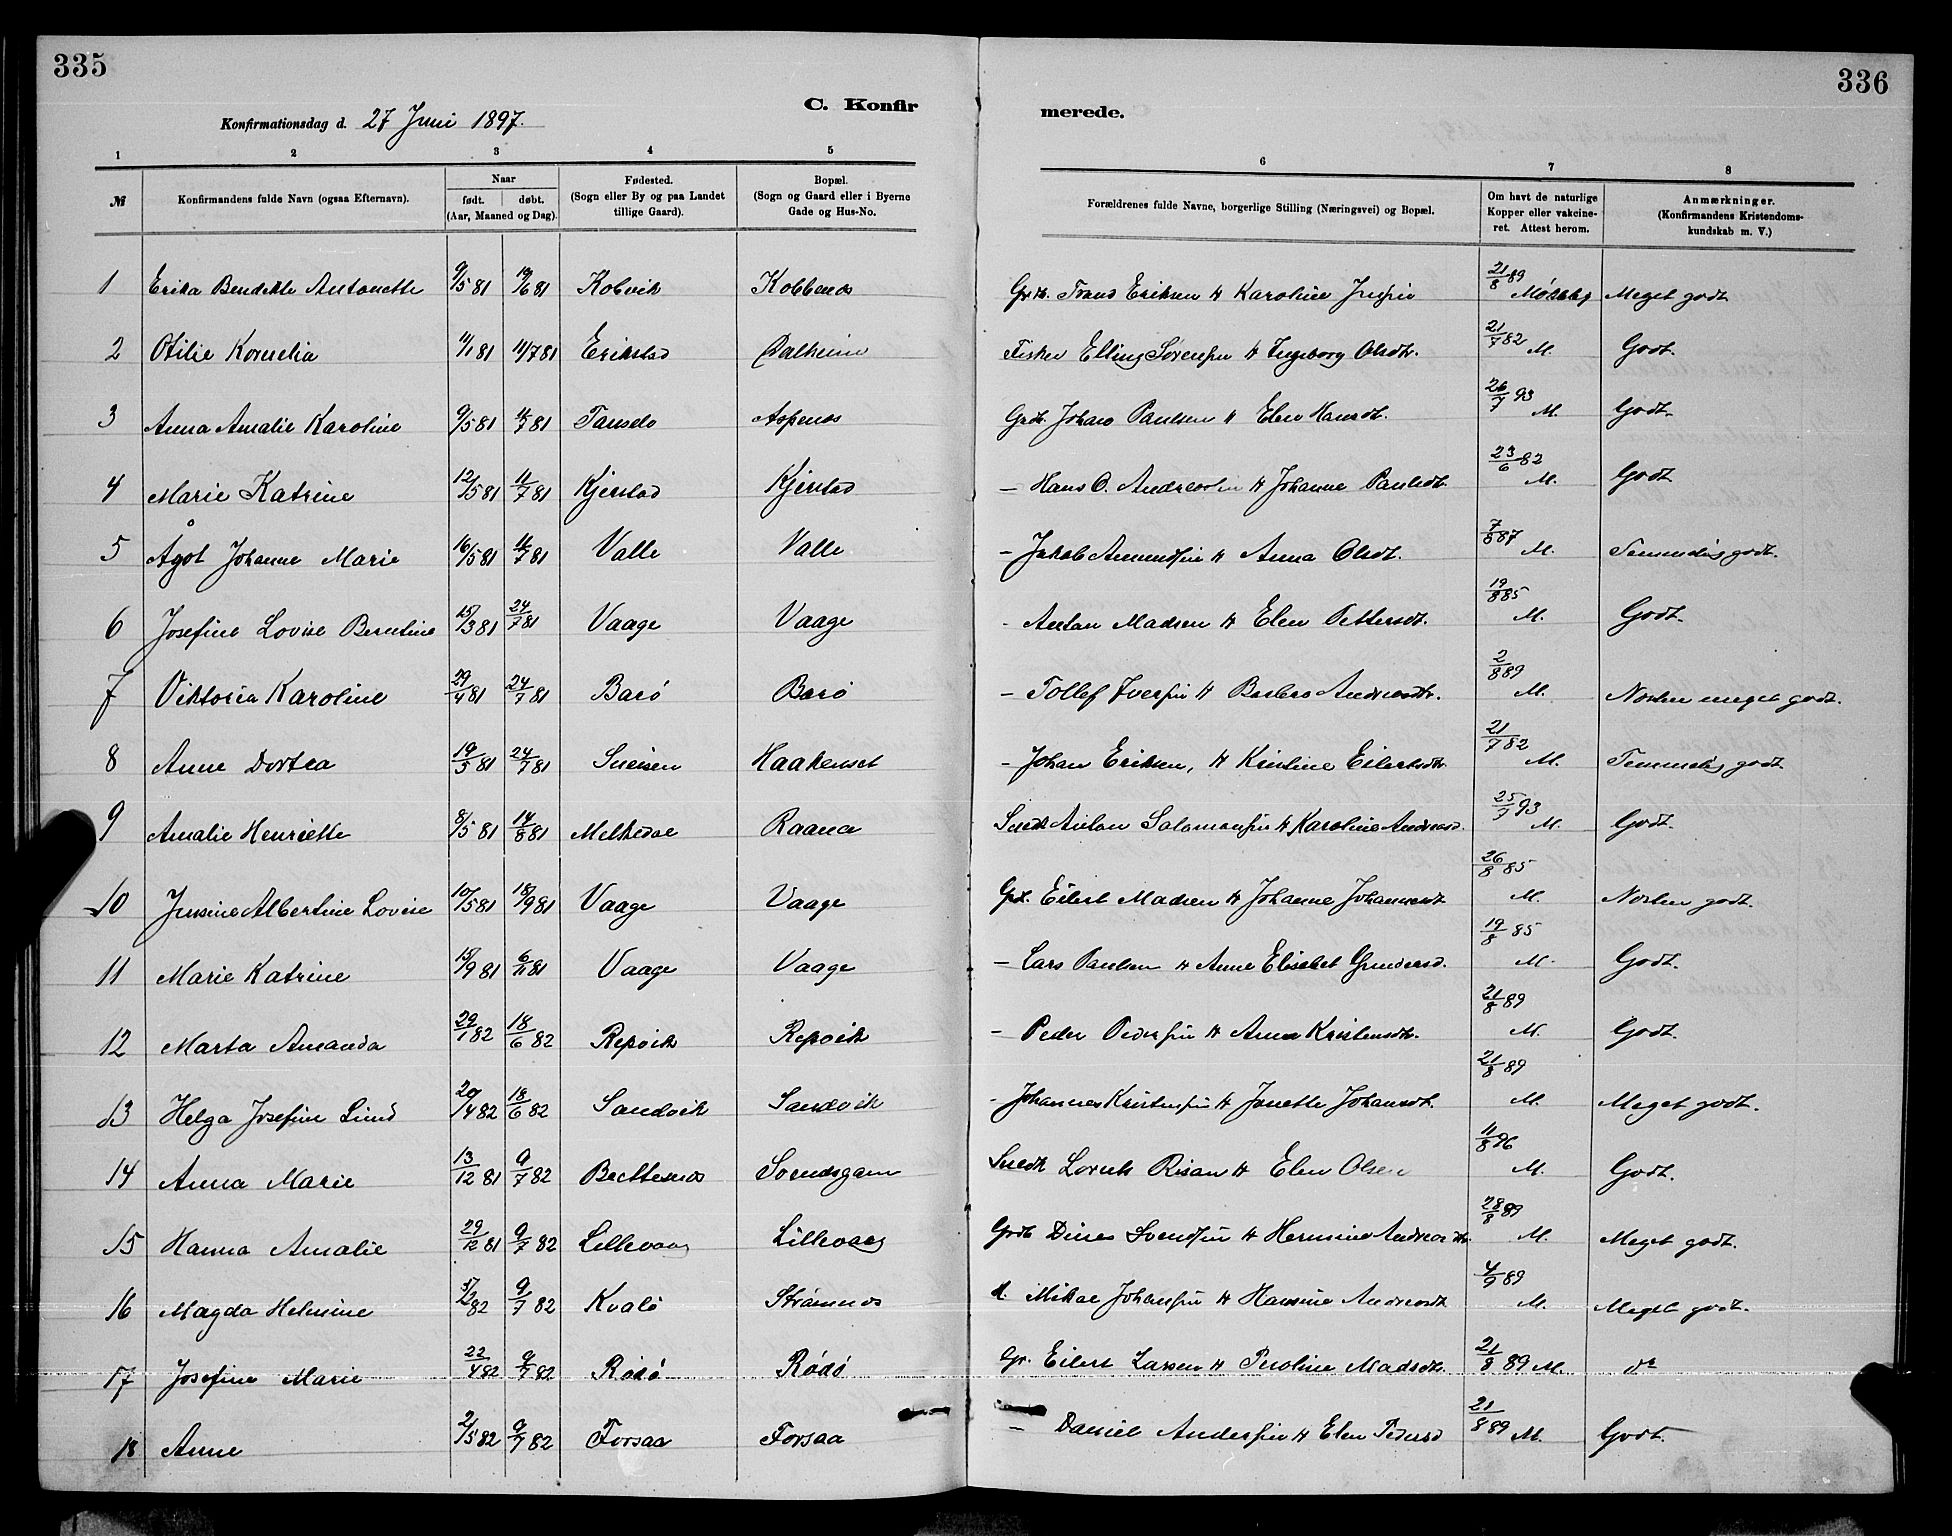 335
336
C. Konfir
merede.
Konfirmationsdag d. 27 Juni 1897.
1 2 3 4 5 6 7 8
№ Konfirmandens fulde Navn (ogsaa Efternavn). Naar født. døbt. (Aar, Maaned og Dag). Fødested. (Sogn eller By og paa Landet tillige Gaard). Bopæl. (Sogn og Gaard eller i Byerne Gade og Hus-No. Forældrenes fulde Navne, borgerlige Stilling (Næringsvei) og Bopæl. Om havt de naturlige Kopper eller vakcineret. Attest herom. Anmærkninger. (Konfirmandens Kristendomskundskab m. V.)
1 Erika Bendikte Antonette 9/5 81 19/6 81 Kobvik Kobbenes Grdb. Trand Eriksen & Karoline 21/8 89 Meget godt
2 Otilie Kornelia 11/1 81 11/7 81 Erikstad Dalheim Fisker Elling Sørensen & Ingeborg Olsdtr. 21/7 82 M. Godt.
3 Anna Amalie Karoline 9/5 81 11/7 81 Tansdo Aspenes Grdb. Johan Paulsen & Elen Hansdt. 26/7 93 M. Godt.
4 Marie Katrine 12/5 81 11/7 81 Kjerstad Kjerstad – Hans O. Andreassen & Johanne Paulsdt. 23/6 82 M. Godt
5 Ågot Johanne Marie 16/5 81 11/7 81 Valle Valle – Jakob Amundsen & Anna Olsdt. 7/8 87 M. Temmelig godt.
6 Josefine Lovise Berntine 15/3 81 24/7 81 Vaage Vaage - Anton Madsen & Elen Pettersdt. 19/8 85 M. Godt.
7 Viktoria Karoline 29/4 81 24/7 81 Barø Barø – Tollef Iversen & Barbro Andreasdtr. 2/8 89 M. Næsten meget godt.
8 Anne Dortea 19/5 81 24/7 81 Sneisen Haakenset – Johan Eriksen, & Kristine Eilertsdtr 21/7 82 M. Temmelig godt.
9 Amalie Henriette 8/5 81 14/8 81 Melkedal Raana Anton Salamonsen & Karoline Andreasd. 25/9 93 M. Godt.
10 Jensine Albertine Lovise 10/5 81 18/9 81 Vaage Vaage Grd. Eilert Madsen & Johanne Johannesdt 26/8 85 M. Næsten godt.
11 Marie Katrine 15/9 81 6/11 81 Vaage Vaage – Lars Paulsen & Anne Elisabet Gundersd. 19/8 85 M. Godt.
12 Marta Amanda 29/1 82 18/6 82 Repvik Repvik – Peder Pedersen & Anna Kristensdtr. 21/8 89 M. Godt.
13 Helga Josefine Lund 20/4 82 18/6 82 Sandvik Sandvik - Johannes Kristensen & Jonette Johansdt. 21/8 89 M. Meget godt.
14 Anna Marie 13/12 81 9/7 82 Brettesnes Svendsgam Lornts Risan & Elen Olsen 11/8 86 M. Godt.
15 Hanna Amalie 29/12 81 9/7 82 Lillevaag Lillevaag Grdb Dines Svendsen & Hermine Andreasdtr. 28/8 89 M. Meget godt.
16 Magda Helmine 82 9/7 82 Kvalø Strømnes d. Mikal Johansen & Hansine Andreasdt 4/9 89 M. Meget godt.
17 Josefine Marie 22/4 82 9/7 82 Rødø Rødø Gr. Eilert Larsen & Peroline Madsdt. 21/8 89 M. do
18 Anne 2/5 82 9/7 82 Forsaa Forsaa – Daniel Andersen & Elen Pedersd 21/8 89 M. Godt.